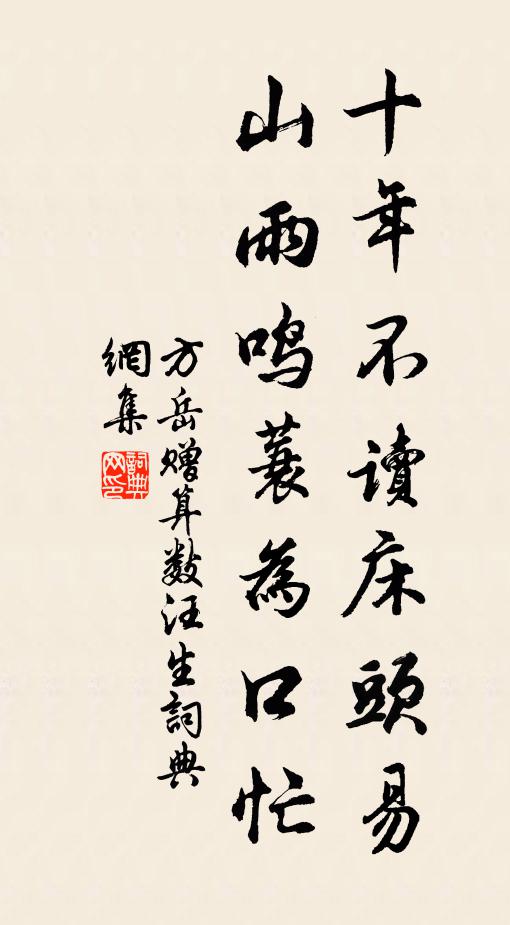 十年不讀床頭易
山雨鳴蓑為口忙
方岳赠算数汪生詞典
網集
詞典网印